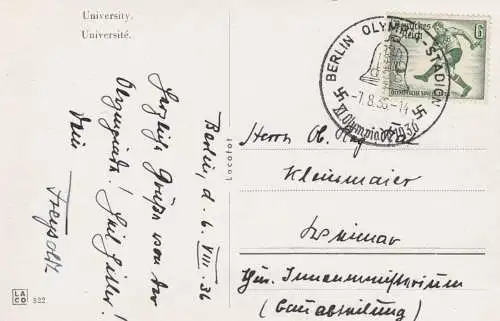 University.
Université.
Berlin, d. 6. VIII. 36
Herzliche Grüße von der
Olympiade! Heil Hitler!
Dein
Locotot
LA
CO
522
BERLIN OLYMPIA-STADION
-7.8.36-14
XI. Olympiade 1936
Deutsches
Reich
6
Herrn Ob. Reg
Kleinmaier
Weimar
Innenministerium
(Bauabteilung)